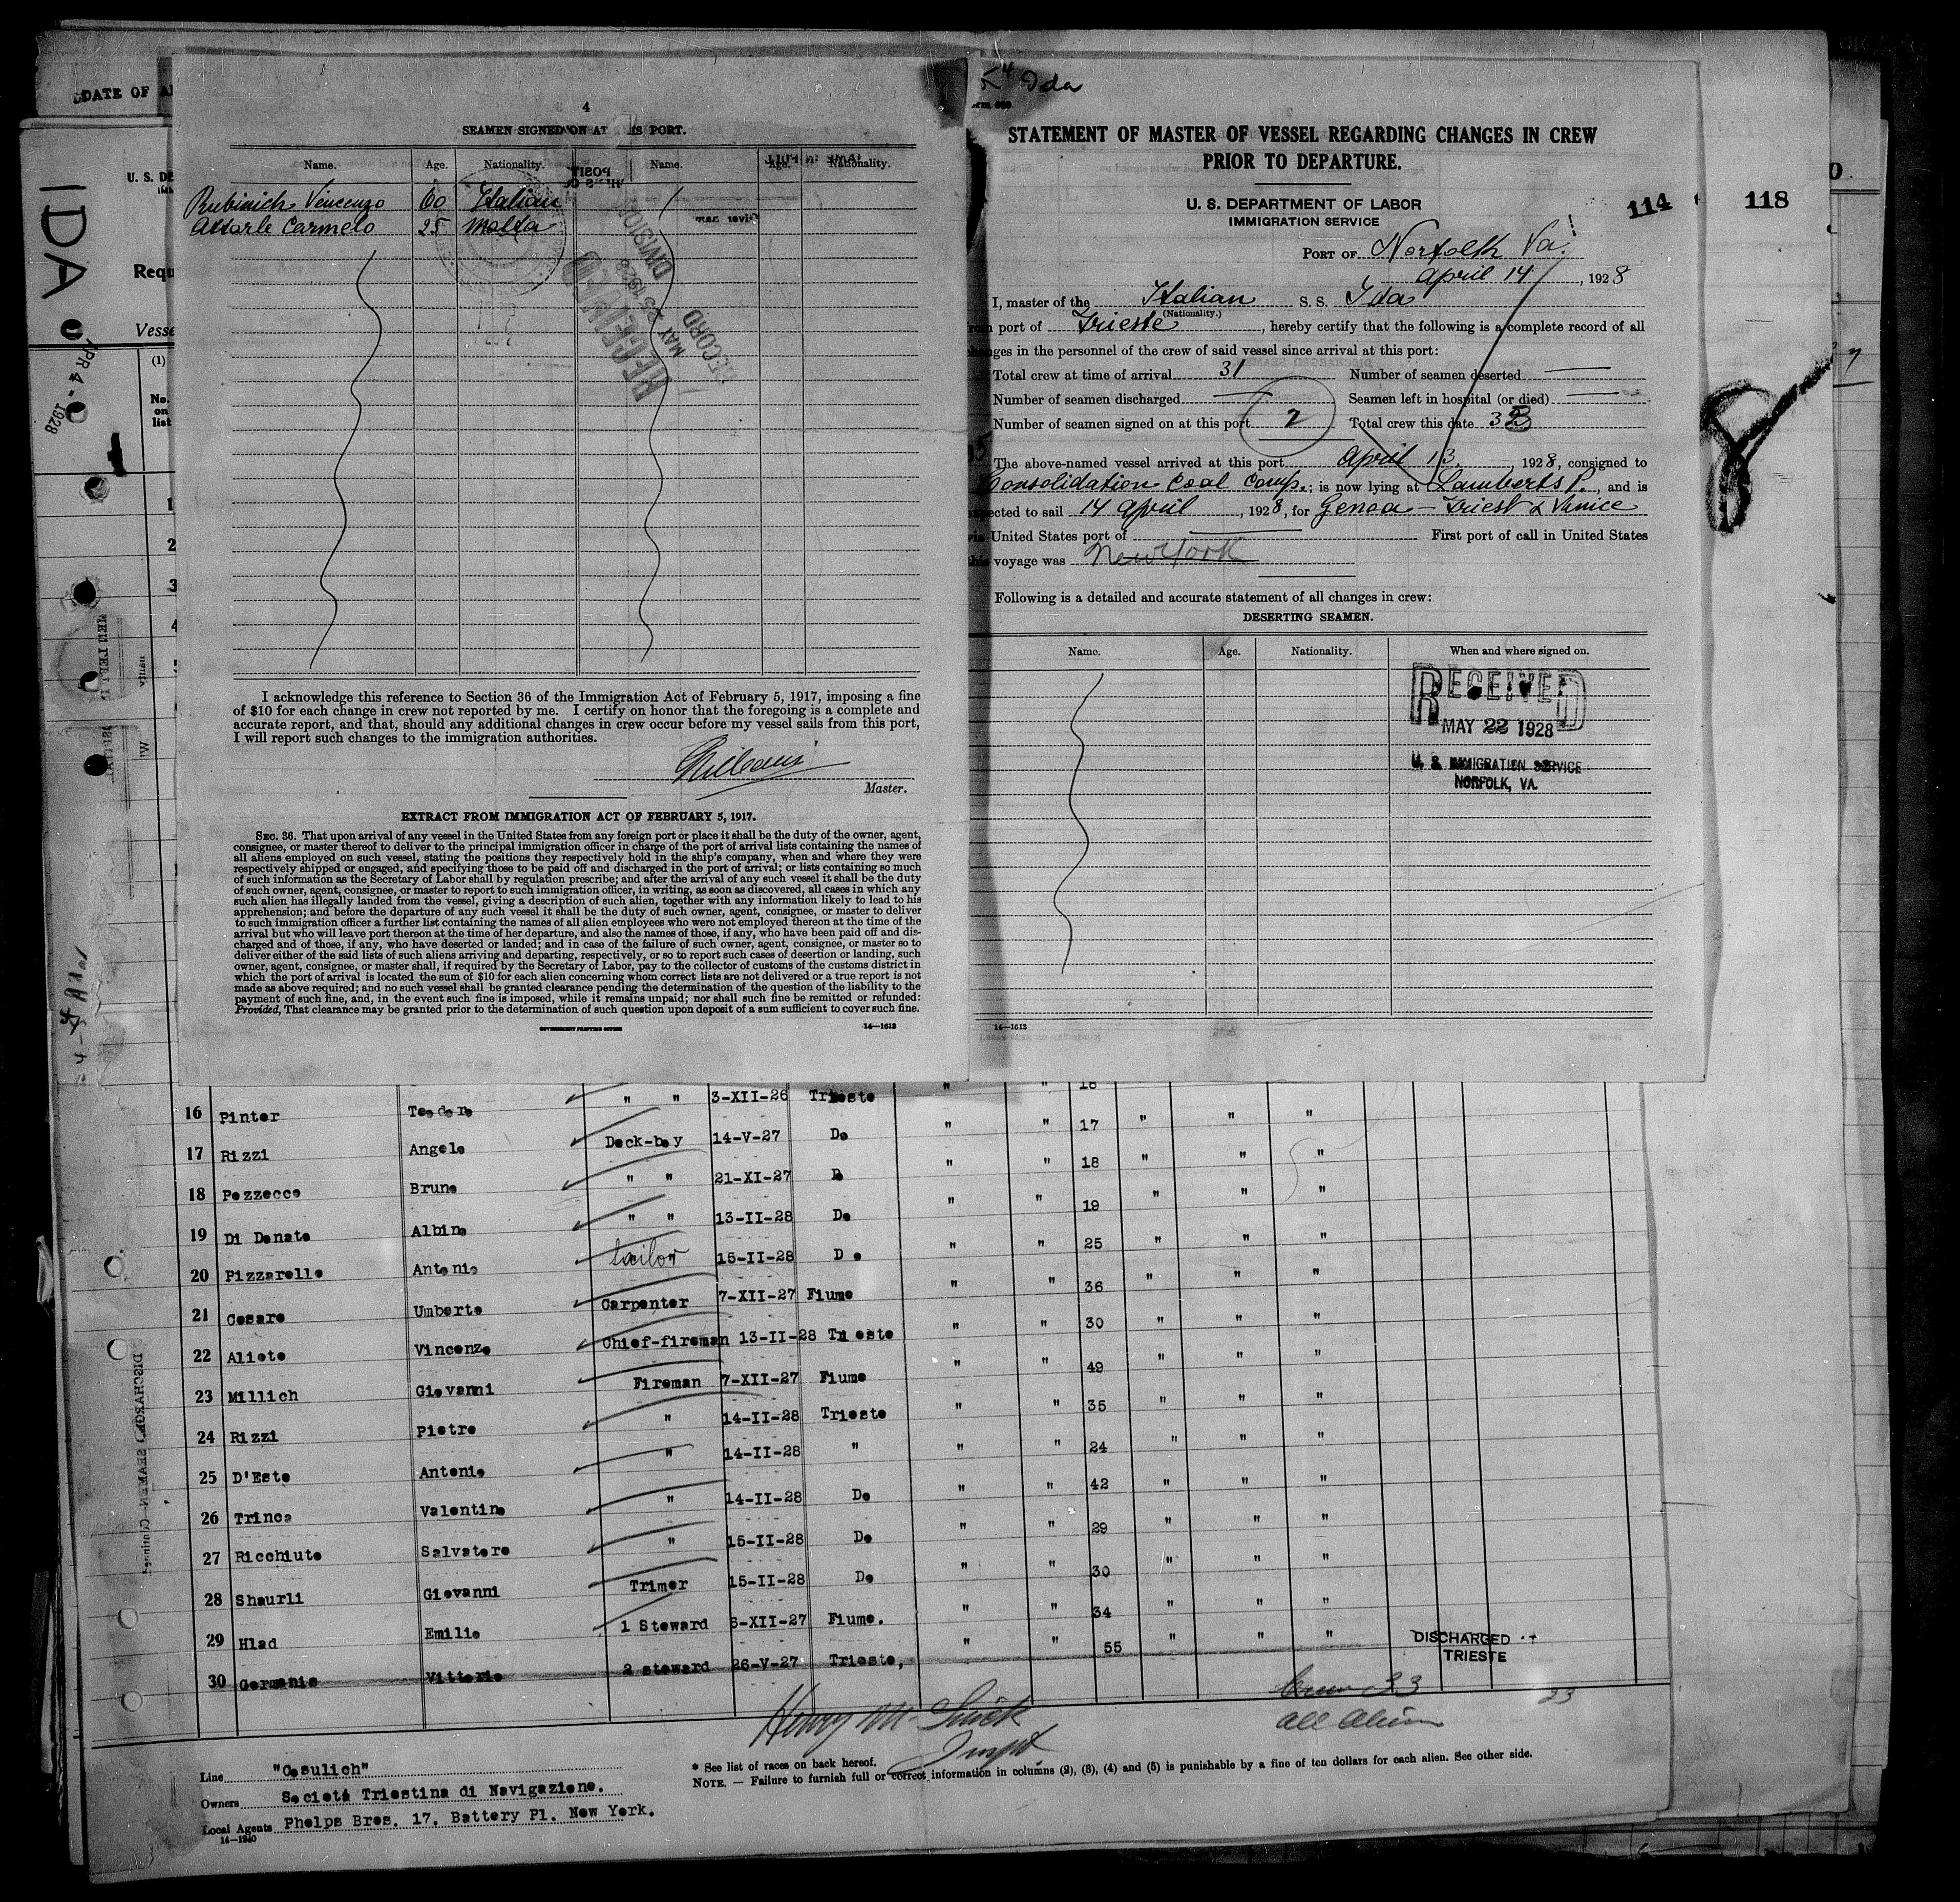 DATE OF
IDA
APR 4 - 1928
U. S. DE
Requ
Vesse
(1)
No.
on
list
1
2
3
4
4
SEAMEN SIGNED ON AT IS PORT.
Name. Age. Nationality. Name. Age. Nationality.
Rubinich Vincenzo 60 Italian
Attarle Carmelo 25 Malta
RECEIVED
MAY 25 1928
RECORD DIVISION
I acknowledge this reference to Section 36 of the Immigration Act of February 5, 1917, imposing a fine
of $10 for each change in crew not reported by me. I certify on honor that the foregoing is a complete and
accurate report, and that, should any additional changes in crew occur before my vessel sails from this port,
I will report such changes to the immigration authorities.
Master.
EXTRACT FROM IMMIGRATION ACT OF FEBRUARY 5, 1917.
SEC. 36. That upon arrival of any vessel in the United States from any foreign port or place it shall be the duty of the owner, agent,
consignee, or master thereof to deliver to the principal immigration officer in charge of the port of arrival lists containing the names of
all aliens employed on such vessel, stating the positions they respectively hold in the ship's company, when and where they were
respectively shipped or engaged, and specifying those to be paid off and discharged in the port of arrival; or lists containing so much
of such information as the Secretary of Labor shall by regulation prescribe; and after the arrival of any such vessel it shall be the duty
of such owner, agent, consignee, or master to report to such immigration officer, in writing, as soon as discovered, all cases in which any
such alien has illegally landed from the vessel, giving a description of such alien, together with any information likely to lead to his
apprehension; and before the departure of any such vessel it shall be the duty of such owner, agent, consignee, or master to deliver
to such immigration officer a further list containing the names of all alien employees who were not employed thereon at the time of the
arrival but who will leave port thereon at the time of her departure, and also the names of those, if any, who have been paid off and dis-
charged and of those, if any, who have deserted or landed; and in case of the failure of such owner, agent, consignee, or master so to
deliver either of the said lists of such aliens arriving and departing, respectively, or so to report such cases of desertion or landing, such
owner, agent, consignee, or master shall, if required by the Secretary of Labor, pay to the collector of customs of the customs district in
which the port of arrival is located the sum of $10 for each alien concerning whom correct lists are not delivered or a true report is not
made as above required; and no such vessel shall be granted clearance pending the determination of the question of the liability to the
payment of such fine, and, in the event such fine is imposed, while it remains unpaid; nor shall such fine be remitted or refunded:
Provided, That clearance may be granted prior to the determination of such question upon deposit of a sum sufficient to cover such fine.
GOVERNMENT PRINTING OFFICE 14—1613
Ida
STATEMENT OF MASTER OF VESSEL REGARDING CHANGES IN CREW
PRIOR TO DEPARTURE.
U. S. DEPARTMENT OF LABOR
IMMIGRATION SERVICE
114 118
PORT OF Norfolk Va.
April 14, 1928
I, master of the Italian S. S. Ida
(Nationality.)
port of Trieste, hereby certify that the following is a complete record of all
nges in the personnel of the crew of said vessel since arrival at this port:
Total crew at time of arrival 31 Number of seamen deserted —
Number of seamen discharged — Seamen left in hospital (or died) —
Number of seamen signed on at this port 2 Total crew this date 33
The above-named vessel arrived at this port April 13, 1928, consigned to
Consolidation Coal Comp.; is now lying at Lamberts P., and is
ected to sail 14 April, 1928, for Genoa - Triest & Venice
United States port of — First port of call in United States
voyage was New York
Following is a detailed and accurate statement of all changes in crew:
DESERTING SEAMEN.
Name. Age. Nationality. When and where signed on.
RECEIVED
MAY 22 1928
U. S. IMMIGRATION SERVICE
NORFOLK, VA.
14—1613
16 Pinter Teodoro " " 3-XII-26 Trieste " " 16
17 Rizzi Angelo Deck-boy 14-V-27 Do " " 17 " " "
18 Pozzecco Bruno " " 21-XI-27 D " " 18 " " "
19 Di Donato Albino " " 13-II-28 Do " " 19 " " "
20 Pizzarello Antonio Sailor 15-II-28 Do " " 25 " " "
21 Cesare Umberto Carpenter 7-XII-27 Fiume " " 36 " " "
22 Alieto Vincenzo Chief-fireman 13-II-28 Trieste " " 30 " " "
23 Millich Giovanni Fireman 7-XII-27 Fiume " " 49 " " "
24 Rizzi Pietro " 14-II-28 Trieste " " 35 " " "
25 D'Este Antonio " 14-II-28 " " " 24 " " "
26 Trinca Valentino " 14-II-28 Do " " 42 " " "
27 Ricchiuto Salvatore " 15-II-28 Do " " 29 " " "
28 Shaurli Giovanni Trimer 15-II-28 Do " " 30 " " "
29 Hlad Emilio 1 Steward 6-XII-27 Fiume. " " 34 " " "
30 Germanis Vittorio 2 steward 26-V-27 Trieste, " " 55 " " "
DISCHARGED AT
TRIESTE
Crew 33
All Alien
23
Line "Cosulich"
Owners Societá Triestina di Navigazione.
Local Agents Phelps Bros. 17, Battery Pl. New York.
14—1240
* See list of races on back hereof.
NOTE. — Failure to furnish full or correct information in columns (2), (3), (4) and (5) is punishable by a fine of ten dollars for each alien. See other side.